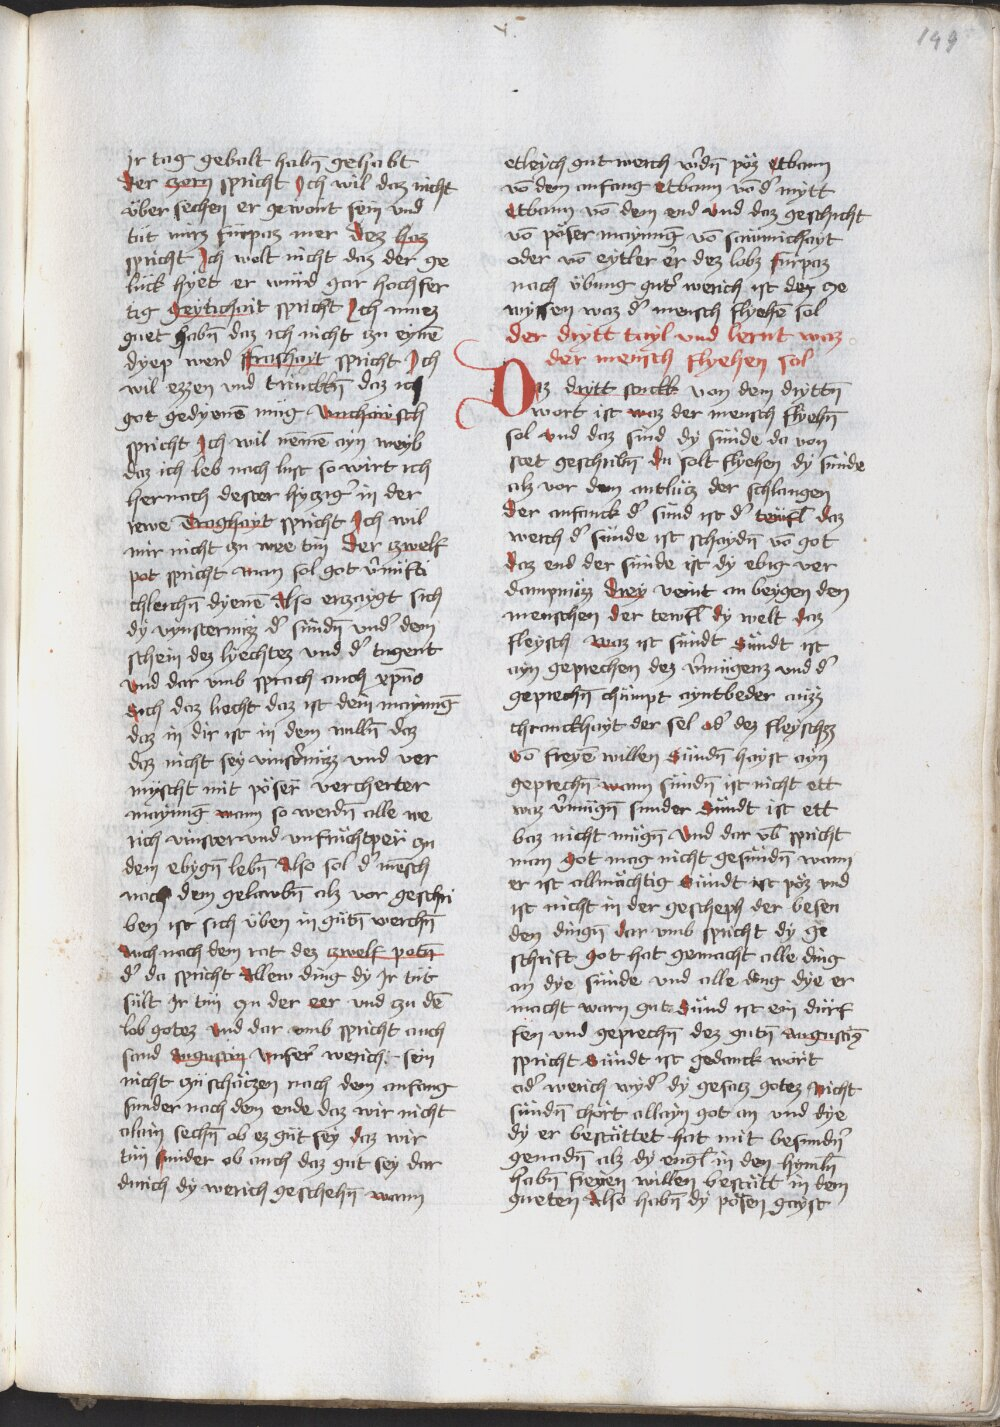 149
Jr tag gebalt habñ gehabt
der zorn spricht Ich wil daz nicht
über sechen er gewont sein vnd
tüt mirs fürpaz mer Dez haz
spricht Ich wolt nicht daz der ge
lück hyet er würd gar hochfer
tig Geytichait spricht Ich muez
guet habñ daz ich nicht zu eynē
dyep werd frashayt spricht Ich
wil ezzen vnd trinckñ daz ich
got gedyenē müg Vnchawsch
spricht Ich wil nēmē ayn weyb
daz ich leb nach lust so wirt ich
hernach dester hytzigʼ in der
rewe Traghayt spricht Ich wil
mir nicht zu wee tün Der zwelf
pot spricht man sol got vʼnüfti
chleichñ dyenē Also erzaygt sich
dy vynsternüzz dʼ sündñ vndʼ dem
schein dez lyechtez vnd dʼ tugent
vnd dar vmb sprach auch xpūs
Sich daz liecht daz ist dein maynūg
daz in dir ist in dem willñ daz
daz nicht sey vinstʼnüzz vnd ver
myscht mit pösēr vercherter
maynūg wann so werdñ alle we
rich vinster vnd vnfrüchtper zu
dem ebygñ lebñ Also sol dʼ mēsch
nach dem gelawbñ alz vor geschri
ben ist sich üben in gütñ werchñ
Auch nach dem rat dez zwelf potñ
dʼ da spricht Allew ding dy Ir tüt
sült Ir tün zu der eer vnd zu dē
lob gotez Vnd dar vmb spricht auch
sand Augustin Vnserʼ werich sein
nicht zü schätzen nach dem anfang
sunder nach dem ende daz wir nicht
alain sechñ ob ez güt sey daz wir
tün sunder ob auch daz gut sey dar
durich dy werich geschehñ wann
etleich gut werch wʼdñ pöz Etbann
vō dem anfang Etbann vō dʼ mytt
Etbann vō dem end Vnd daz geschicht
vō pöser maynūg vō sawmichayt
oder vō eytler er dez lobz Fürpaz
nach übung gutʼ werich ist dez ge
wyssen waz dʼ mensch flyehē sol
der drytt tayl vnd lernt waz
der mensch flyehen sol
Daz drytt stückk von dem dryttñ
wort ist waz der mensch flyehñ
sol Vnd daz sind dy sünde da von
stet geschribñ Du solt flyehen dy sünde
alz vor dem antlütz der schlangen
Der anfanck dʼ sünd ist dʼ tewfl Daz
werch dʼ sünde ist schaydñ vō got
Daz end der sünde ist dy ebig ver
dampnüzz Drey veint an beygen den
menschen der tewfl dy welt daz
fleysch Waz ist sündt Sündt ist
ayn geprechen dez vʼmügenz vnd dʼ
geprechñ chümpt ayntbeder auzz
chranckhayt der sel odʼ dez fleyschz
Võ freyē willen Sündñ hayst ayn
geprechñ wann sündñ ist nicht ett
waz vʼmügñ sunder Sündt ist ett
baz nicht mügñ Vnd dar vb̄ spricht
man Got mag nicht gesündñ wann
er ist allmächtig Sündt ist pöz vnd
ist nicht in der gescheph der besen
den dingñ Dar vmb spricht dy ge
schrift Got hat gemacht alle ding
an dye sünde vnd alle ding dye er
macht warn gut Sünd ist ein dürf
fen vnd geprechñ dez gutñ Augustīg
spricht Sündt ist gedanck wört
odʼ werich wydʼ dy gesacz gotez Nicht
sündñ chört allayn got an vnd dye
dy er bestättet hat mit besundʼn
genadñ alz dy engl in den hymlñ
habñ freyen willen bestätt in dem
gueten Also habñ dy pösen gayst